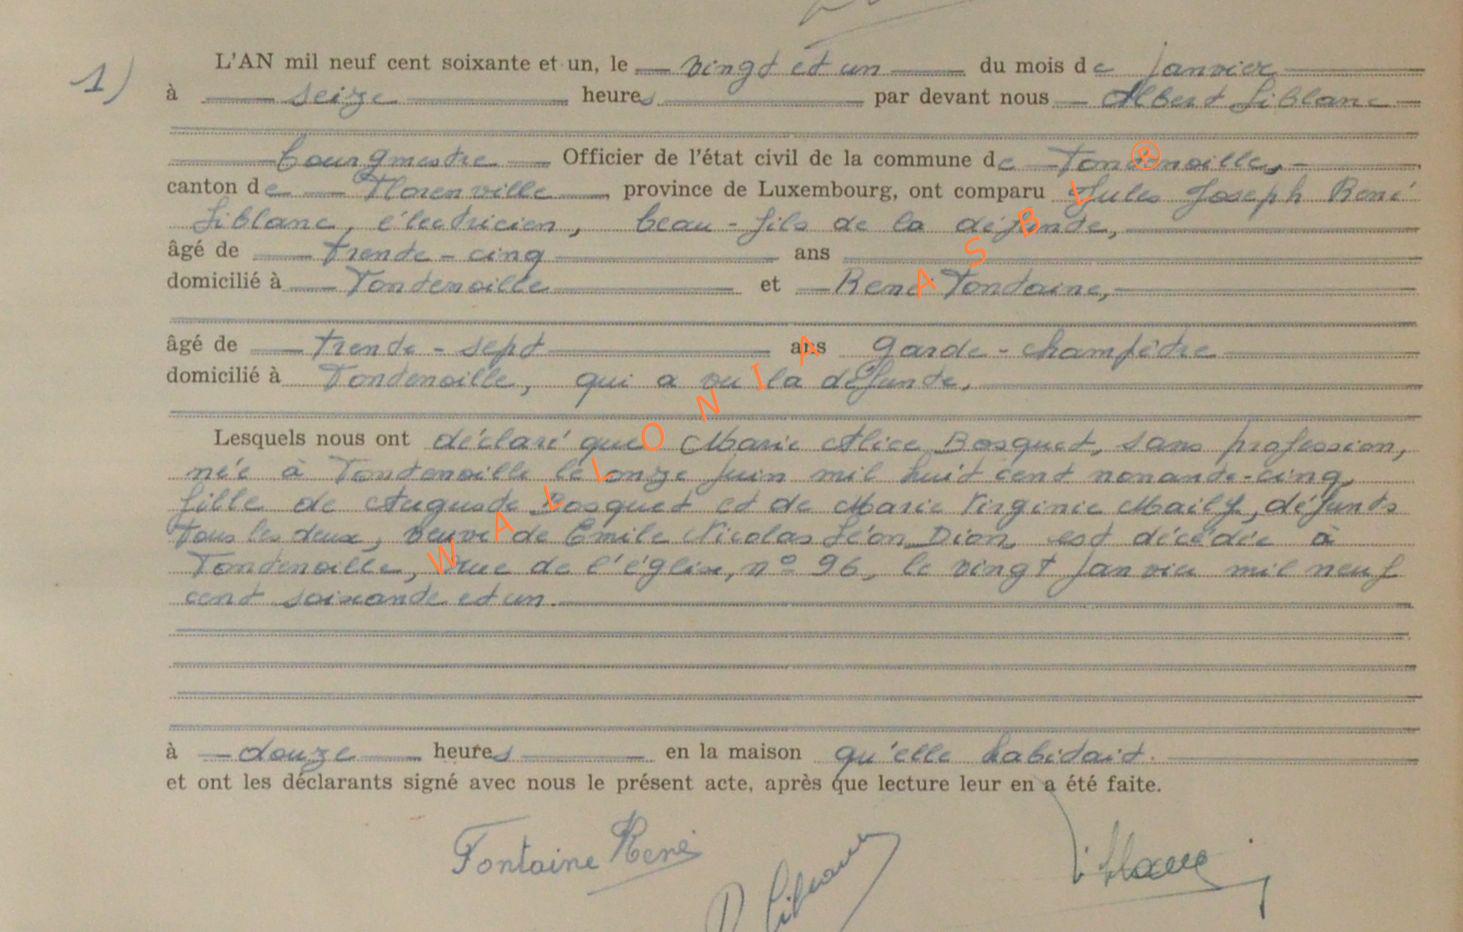 1)
L'AN mil neuf cent soixante et un, le vingt et un du mois de janvier
à seize heures par devant nous Albert Liblanc
bourgmestre Officier de l'état civil de la commune de Fontenoille,
canton de Florenville, province de Luxembourg, ont comparu Jules Joseph René
Liblanc, électricien, beau-fils de la défunte,
âgé de trente-cinq ans
domicilié à Fontenoille et René Fontaine,
âgé de trente-sept ans garde-champêtre
domicilié à Fontenoille, qui a vu la défunte,
Lesquels nous ont déclaré que Marie Alice Bosquet, sans profession,
née à Fontenoille le onze juin mil huit cent nonante-cinq,
fille de Auguste Bosquet et de Marie Virginie Mailf, défunts
tous les deux, veuve de Emile Nicolas Léon Dion est décédée à
Fontenoille, rue de l'église, nº 96, le vingt janvier mil neuf
cent soixante et un.
à douze heures en la maison qu'elle habitait.
et ont les déclarants signé avec nous le présent acte, après que lecture leur en a été faite.
Fontaine René
Liblanc
WALLONIA ASBL ®